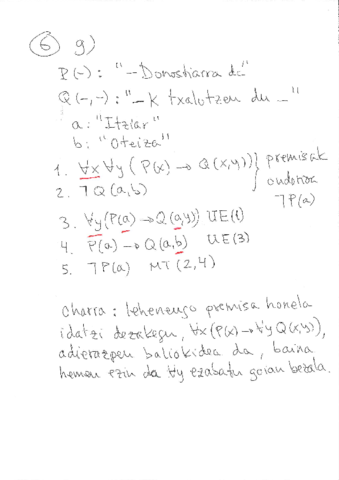 6 g)
P(-): "– Donostiarra da"
Q(-,-): "–k txalotzen du –"
a: "Itziar"
b: "Oteiza"
1. ∀x ∀y (P(x) → Q(x,y)) } premisak
2. ¬Q(a,b) ondorioa
¬P(a)
3. ∀y(P(a) → Q(a,y)) UE(1)
4. P(a) → Q(a,b) UE(3)
5. ¬P(a) MT(2,4)
Oharra: lehenengo premisa honela
idatzi dezakegu, ∀x(P(x) → ∀y Q(x,y)),
adierazpen baliokidea da, baina
hemen ezin da ∀y ezabatu goian bezala.